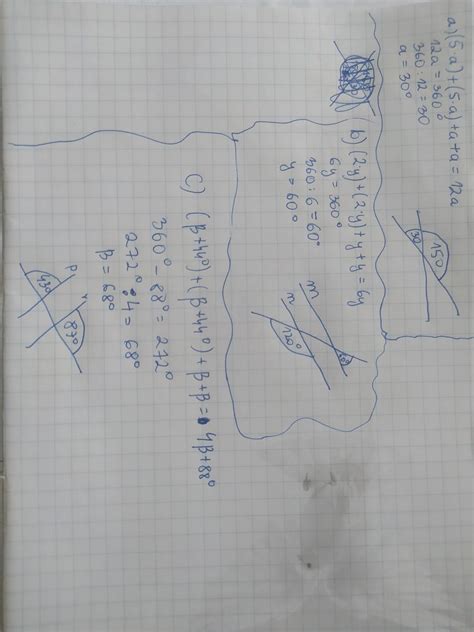 a) (5·a)+(5·a)+a+a=12a
12a=360°
360:12=30
a=30°
150°
30
b) (2y)+(2·y)+y+y=6y
6y=360°
360:6=60°
y=60°
m
n
120°
c) (β+44°)+(β+44°)+β+β=4β+88°
360°-88°=272°
272°:4=68°
β=68°
p
87°